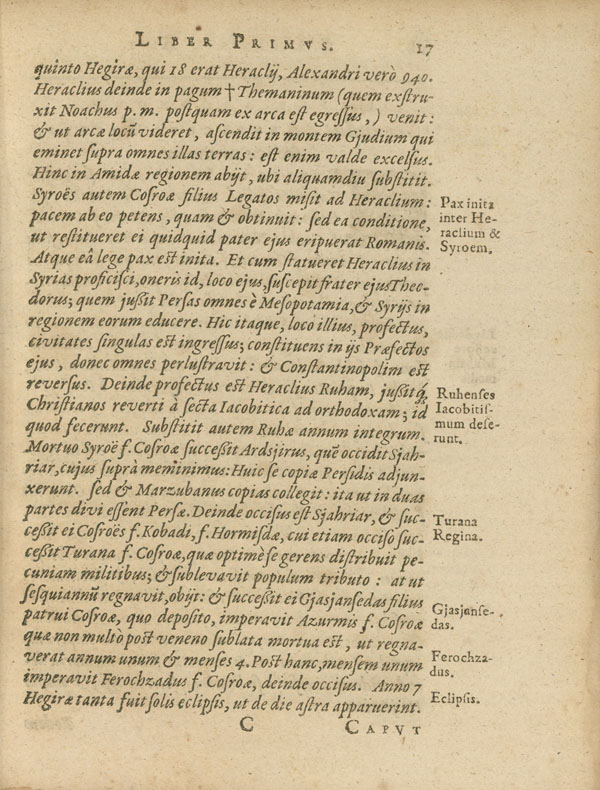 LIBER PRIMVS. 17
quinto Hegiræ, qui 18 erat Heraclij, Alexandri verò 940.
Heraclius deinde in pagum † Themaninum (quem exstru-
xit Noachus p. m. postquam ex arca est egressus,) venit:
& ut arcæ locū videret, ascendit in montem Gjudium qui
eminet supra omnes illas terras: est enim valde excelsus.
Hinc in Amidæ regionem abijt, ubi aliquamdiu substitit.
Syroës autem Cosroæ filius Legatos misit ad Heraclium:
pacem ab eo petens, quam & obtinuit: sed ea conditione,
ut restitueret ei quidquid pater ejus eripuerat Romanis.
Atque eâ lege pax est inita. Et cum statueret Heraclius in
Syrias proficisci, oneris id, loco ejus, suscepit frater ejus Theo-
dorus; quem jussit Persas omnes è Mesopotamia, & Syrijs in
regionem eorum educere. Hic itaque, loco illius, profectus,
civitates singulas est ingressus; constituens in ijs Præfectos
ejus, donec omnes perlustravit: & Constantinopolim est
reversus. Deinde profectus est Heraclius Ruham, jussitq́;
Christianos reverti à secta Iacobitica ad orthodoxam; id
quod fecerunt. Substitit autem Ruhæ annum integrum.
Mortuo Syroë f. Cosroæ successit Ardsjirus, quē occidit Sjah-
riar, cujus suprà meminimus: Huic se copiæ Persidis adjun-
xerunt. sed & Marzubanus copias collegit: ita ut in duas
partes divi essent Persæ. Deinde occisus est Sjahriar, & suc-
cessit ei Cosroës f. Kobadi, f. Hormisdæ, cui etiam occiso suc-
cessit Turana f. Cosroæ, quæ optimè se gerens distribuit pe-
cuniam militibus; & sublevavit populum tributo: at ut
sesquiannū regnavit, obijt: & successit ei Gjasjansedas filius
patrui Cosroæ, quo deposito, imperavit Azurmis f. Cosroæ
quæ non multò post veneno sublata mortua est, ut regna-
verat annum unum & menses 4. Post hanc, mensem unum
imperavit Ferochzadus f. Cosroæ, deinde occisus. Anno 7
Hegiræ tanta fuit solis eclipsis, ut de die astra apparuerint.
Pax inita
inter He-
raclium &
Syroem.
Ruhenses
Iacobitis-
mum dese-
runt.
Turana
Regina.
Gjasjanse-
das.
Ferochza-
dus.
Eclipsis.
C CAPVT